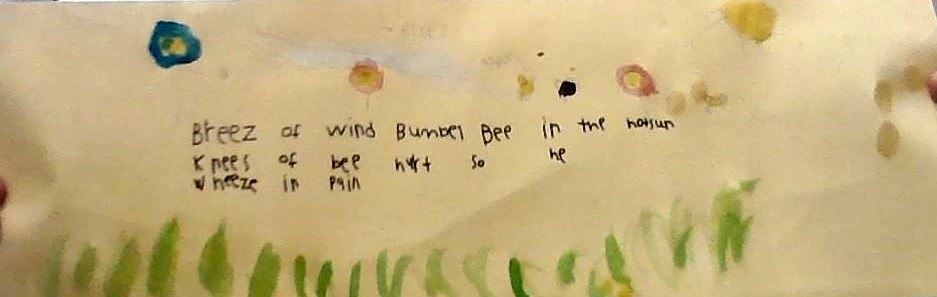 Breez of wind Bumbel Bee in the hotsun
Knees of bee hurt so he
wheeze in pain